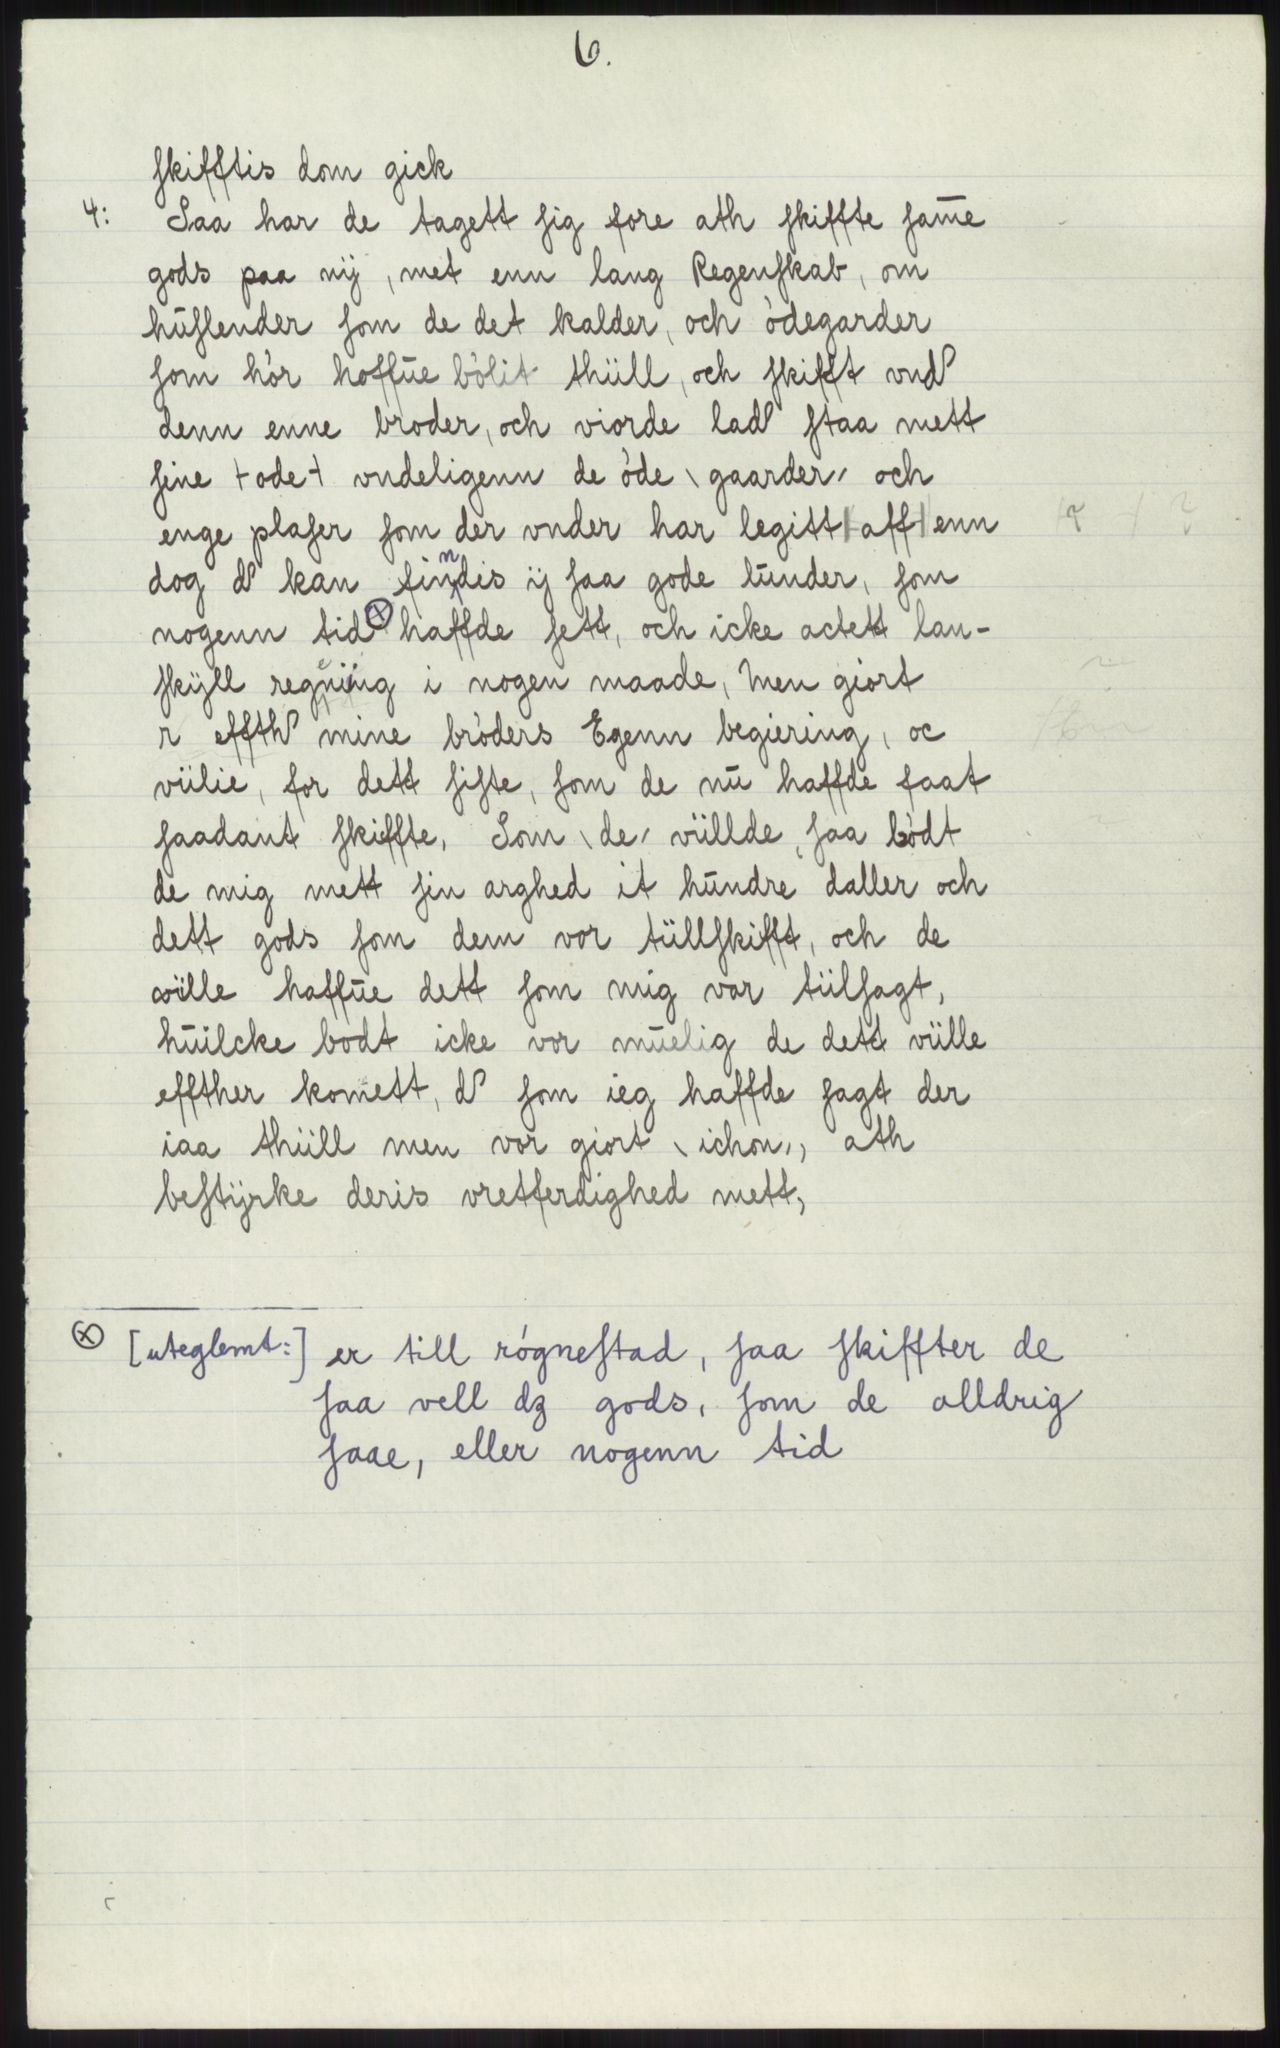 6.
skifftis dom gick
4: Saa har de tagett sig fore ath skiffte sam̄e
gods paa nÿ, met enn lang Regenskab, om
hūslender som de det kalder, och òdegarder
som hòr hoffūe bòlit thüll, och skifft vnd
denn enne broder, och viorde lad staa mett
sine + ode + vndeligenn de òde \ gaarder / och
enge plaser som der vnder har legitt | aff | enn
dog d kan findis ij saa gode lūnder, som
nogenn tid ⊗ haffde sett, och icke actett lan-
skÿll regning i nogen maade, Men giort
r effth mine bròders Egenn begiering, oc
vülie, for dett siste, som de nū haffde faat
saadant skiffte, Som \ de / vüllde, saa bòdt
de mig mett sin arghed it hūndre daller och
dett gods som dem vor tüllskifft, och de
wille haffūe dett som mig var tülsagt,
hūilcke bodt icke vor mūelig de dett vülle
effther komett, d som ieg haffde sagt der
iaa thüll men vor giort \ ichon /, ath
bestÿrke deris vretferdighed mett,
⊗ [uteglemt:] er till rògnestad, saa skiffter de
saa vell dʒ gods, som de alldrig
saae, eller nogenn tid